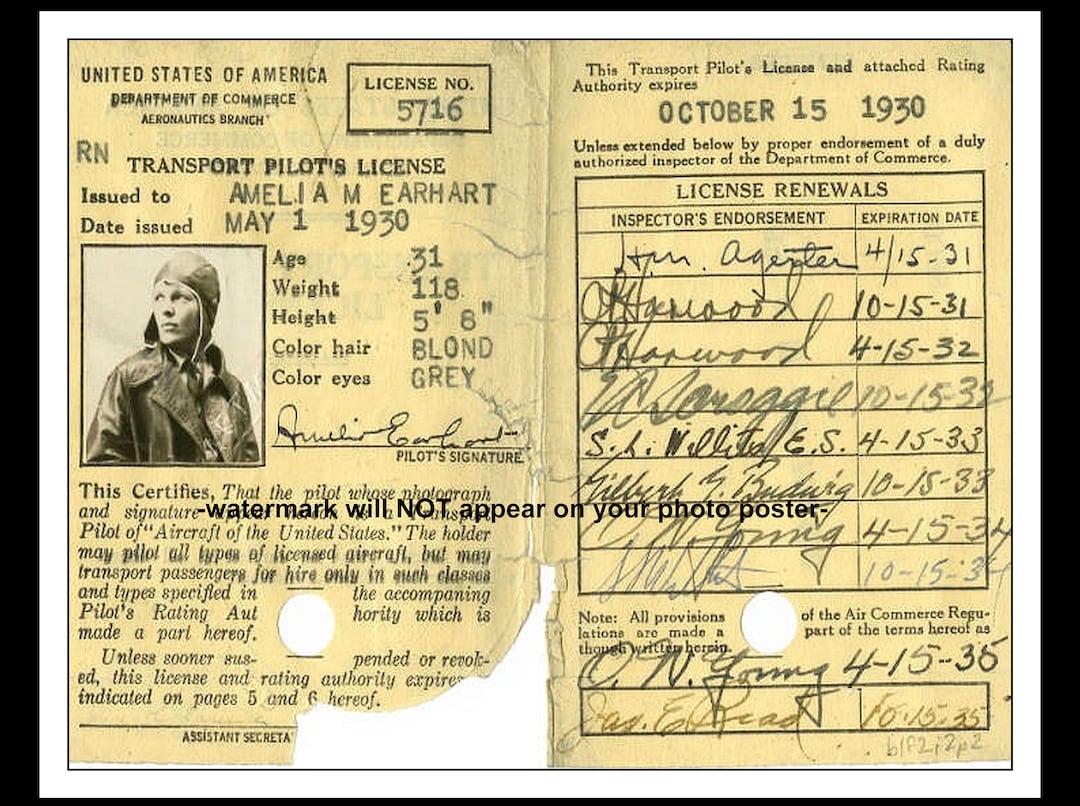 UNITED STATES OF AMERICA
DEPARTMENT OF COMMERCE
AERONAUTICS BRANCH
LICENSE NO.
5716
RN
TRANSPORT PILOT'S LICENSE
Issued to AMELIA M EARHART
Date issued MAY 1 1930
Age 31
Weight 118
Height 5' 8"
Color hair BLOND
Color eyes GREY
Amelia Earhart
PILOT'S SIGNATURE
This Certifies, That the pilot whose photograph
and signature
-watermark will NOT appear on your photo poster-
Pilot of "Aircraft of the United States." The holder
may pilot all types of licensed aircraft, but may
transport passengers for hire only in such classes
and types specified in the accompaning
Pilot's Rating Aut hority which is
made a part hereof.
Unless sooner sus- pended or revok-
ed, this license and rating authority expires
indicated on pages 5 and 6 hereof.
ASSISTANT SECRETA
This Transport Pilot's License and attached Rating
Authority expires
OCTOBER 15 1930
Unless extended below by proper endorsement of a duly
authorized inspector of the Department of Commerce.
LICENSE RENEWALS
INSPECTOR'S ENDORSEMENT EXPIRATION DATE
4/15-31
Harwood 10-15-31
Harwood 4-15-32
10-15-32
S. L. Willits E.S. 4-15-33
Gilbert G. Budwig 10-15-33
Young 4-15-34
10-15-34
Note: All provisions of the Air Commerce Regu-
lations are made a part of the terms hereof as
though written herein.
O. N. Young 4-15-35
Jas. E. Read 10-15-35